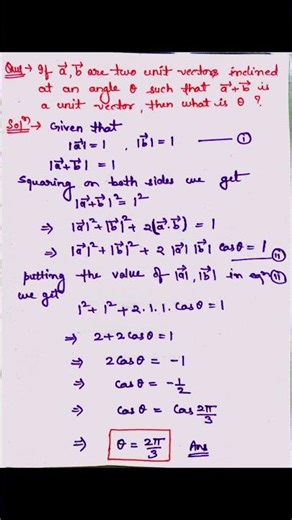 Que → If a⃗, b⃗ are two unit vectors inclined
at an angle θ such that a⃗+b⃗ is
a unit vector, then what is θ ?
Solⁿ → Given that
|a⃗| = 1 , |b⃗| = 1 —— (i)
|a⃗+b⃗| = 1
Squaring on both sides we get
|a⃗+b⃗|² = 1²
⇒ |a⃗|²+|b⃗|²+ 2(a⃗.b⃗) = 1
⇒ |a⃗|²+|b⃗|²+ 2 |a⃗| |b⃗| cosθ = 1 —— (ii)
putting the value of |a⃗|, |b⃗| in eqⁿ (ii)
we get
1²+ 1²+ 2.1.1. cosθ = 1
⇒ 2+2cosθ = 1
⇒ 2cosθ = -1
⇒ cosθ = -1/2
⇒ cosθ = cos 2π/3
⇒ θ = 2π/3 Ans